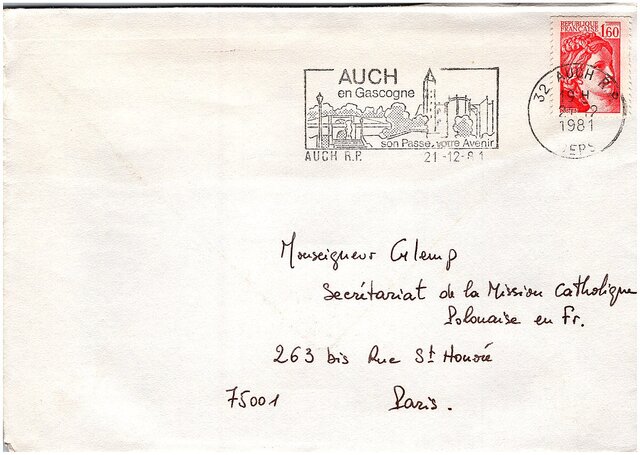 REPUBLIQUE
FRANCAISE 1,60
32 AUCH R.P.
1981
GERS
AUCH
en Gascogne
son Passe, votre Avenir
AUCH R.P. 21-12-81
Monseigneur Glemp
Secrétariat de la Mission Catholique
Polonaise en Fr.
263 bis Rue St Honoré
75001 Paris.